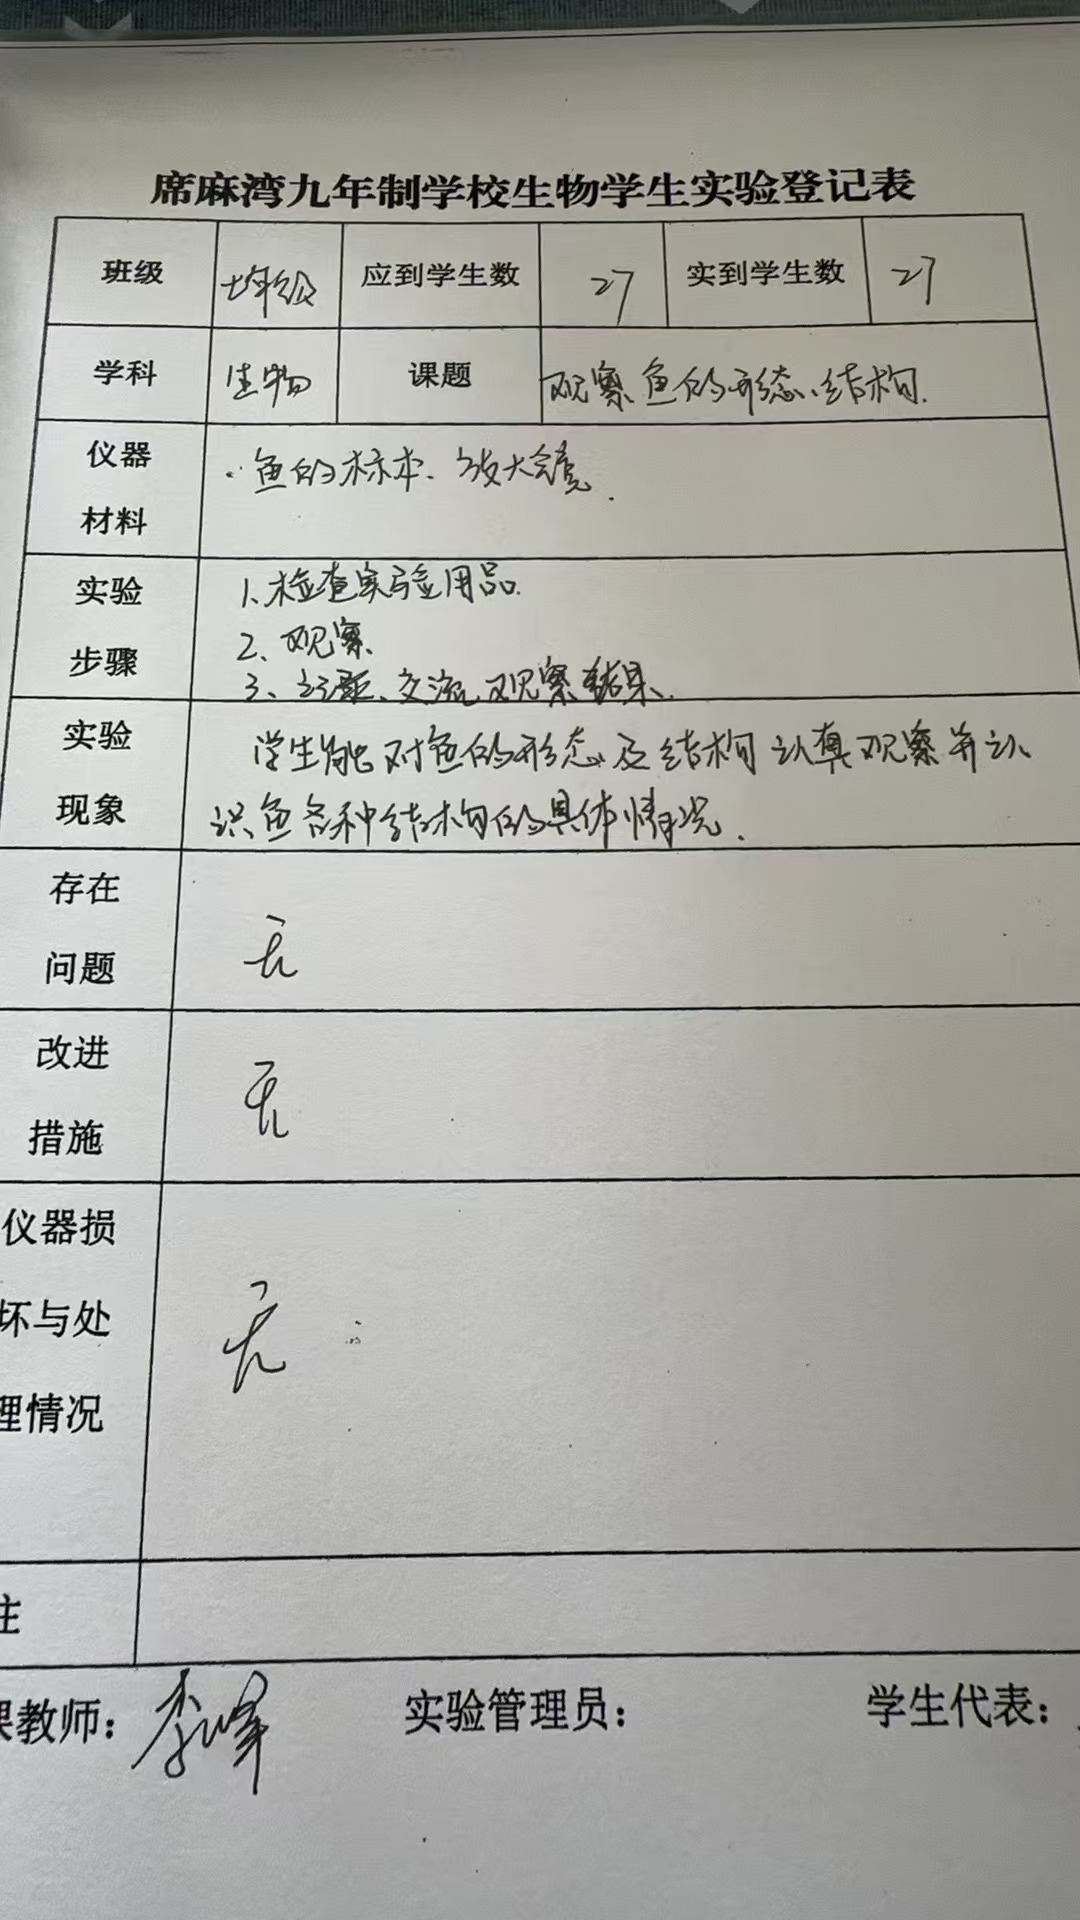 席麻湾九年制学校生物学生实验登记表
班级 七年级 应到学生数 27 实到学生数 27
学科 生物 课题 观察鱼的形态、结构.
仪器
材料
鱼的标本、放大镜.
实验
步骤
1、检查实验用品.
2、观察
3、记录、交流观察结果.
实验
现象
学生能对鱼的形态及结构认真观察并认
识鱼各种结构的具体情况.
存在
问题
无
改进
措施
无
仪器损
坏与处
理情况
无
注
课教师: 李峰 实验管理员: 学生代表: